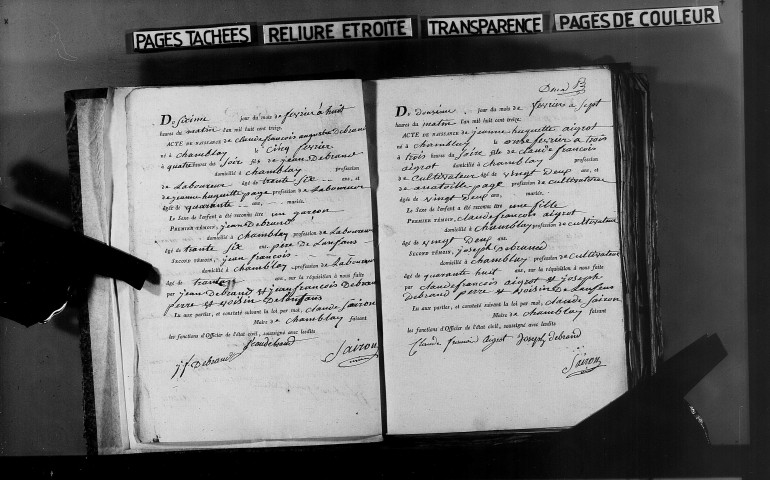 PAGES TACHÉES RELIURE ETROITE TRANSPARENCE PAGES DE COULEUR
Du Sixieme jour du mois de fevrier à huit
heures du matin l'an mil huit cent treize.
ACTE DE NAISSANCE de claude francois auguste debrand
né à chamblay le cinq fevrier
à quatre heures du Soir fils de jean Debrand
domicilié à chamblay profession
de Laboureur âgé de trante Six ans, et
de jeanne huguette page profession de Laboureur
âgée de quarante ans, mariés.
Le Sexe de l'enfant a été reconnu être un garcon
PREMIER TÉMOIN, jean Debrand
domicilié à chamblay profession de Laboureur
âgé de trante Six ans, pere de Lanfans
SECOND TÉMOIN, jean francois
domicilié à chamblay profession de Laboureur
âgé de ans, sur la réquisition à nous faite
par jean Debrand et jean francois Debrand
perre et voisin De Lanfans
Lu aux parties, et constaté suivant la loi par moi, claude Sairon
Maire de chamblay faisant
les fonctions d'Officier de l'état civil, soussigné avec lesdits
Jean debrand
j f Debrand Sairon
Du douzieme jour du mois de fevrier à sept
heures du matin l'an mil huit cent treize.
ACTE DE NAISSANCE de jeanne huguette aigrot
né à chamblay le onze fevrier à trois
à trois heures du Soire fils de claude francois
aigrot domicilié à chamblay profession
de Cultivateur âgé de vingt Deux ans, et
de anatoille page profession de cultivaterice
âgée de vingt Deux ans, mariés.
Le Sexe de l'enfant a été reconnu être une fille
PREMIER TÉMOIN, claude francois aigrot
domicilié à chamblay profession de Cultivateur
âgé de vingt Deux ans,
SECOND TÉMOIN, joseph Debrand
domicilié à chamblay profession de Cultivateur
âgé de quarante huit ans, sur la réquisition à nous faite
par claude francois aigrot et joseph
Debrand perre et voisin de Lanfens
Lu aux parties, et constaté suivant la loi par moi, claude Sairon
Maire de chamblay faisant
les fonctions d'Officier de l'état civil, soussigné avec lesdits
Claude francois Aigrot Joseph debrand
Sairon